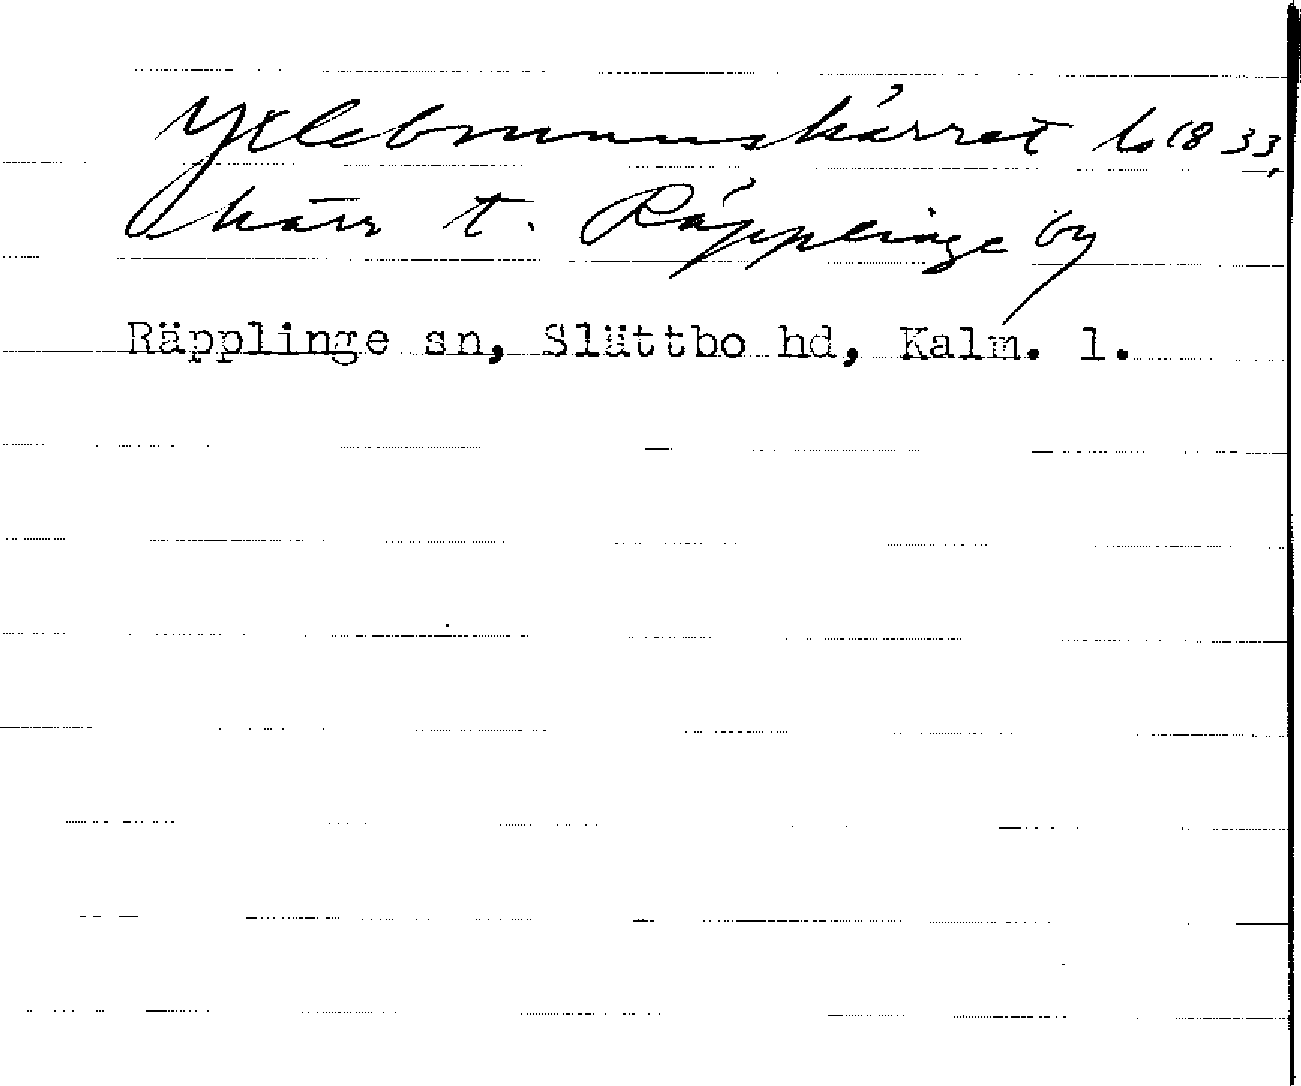 Yllebrunnskärret L 1833,
kärr t. Räpplinge by
Räpplinge sn, Slättbo hd, Kalm. l.